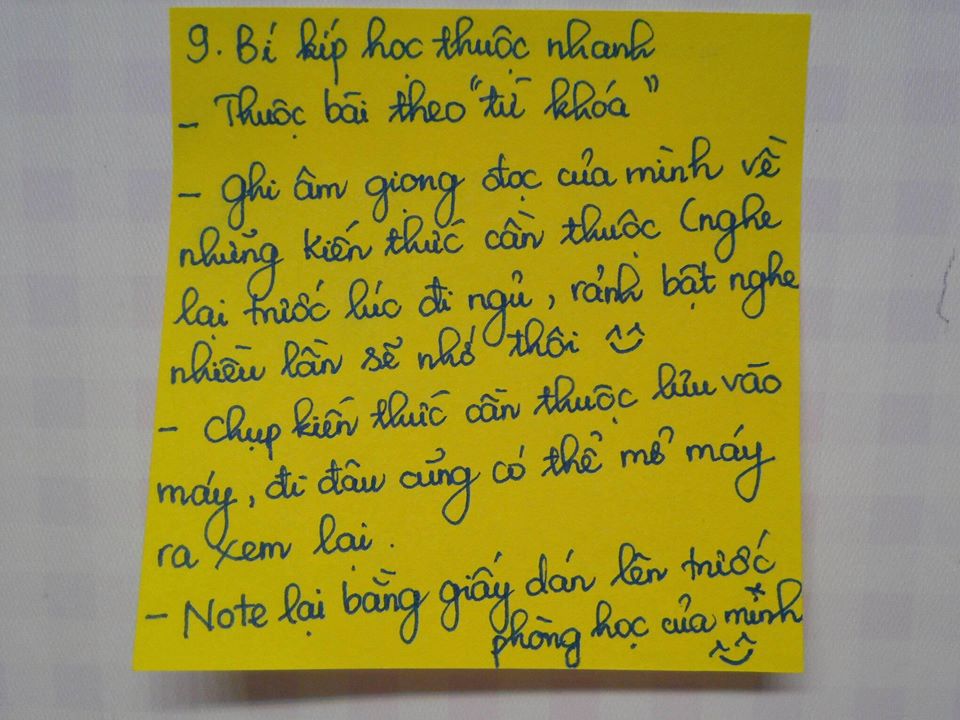 9. Bí kíp học thuộc nhanh
- Thuộc bài theo "từ khóa"
- Ghi âm giọng đọc của mình về
những kiến thức cần thuộc (nghe
lại trước lúc đi ngủ, rảnh bật nghe
nhiều lần sẽ nhớ thôi ^^
- Chụp kiến thức cần thuộc lưu vào
máy, đi đâu cũng có thể mở máy
ra xem lại.
- Note lại bằng giấy dán lên trước
phòng học của mình ^^